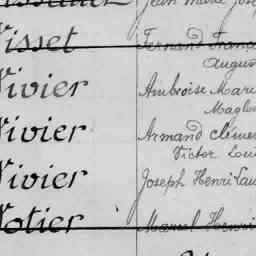 Jean Marie Jose
Visset Fernand Franç
Augus
Vivier Ambroise Mari
Maglo
Vivier Armand Clémen
Victor Loui
Vivier Joseph Henri Lau
Votier Marcel Henri